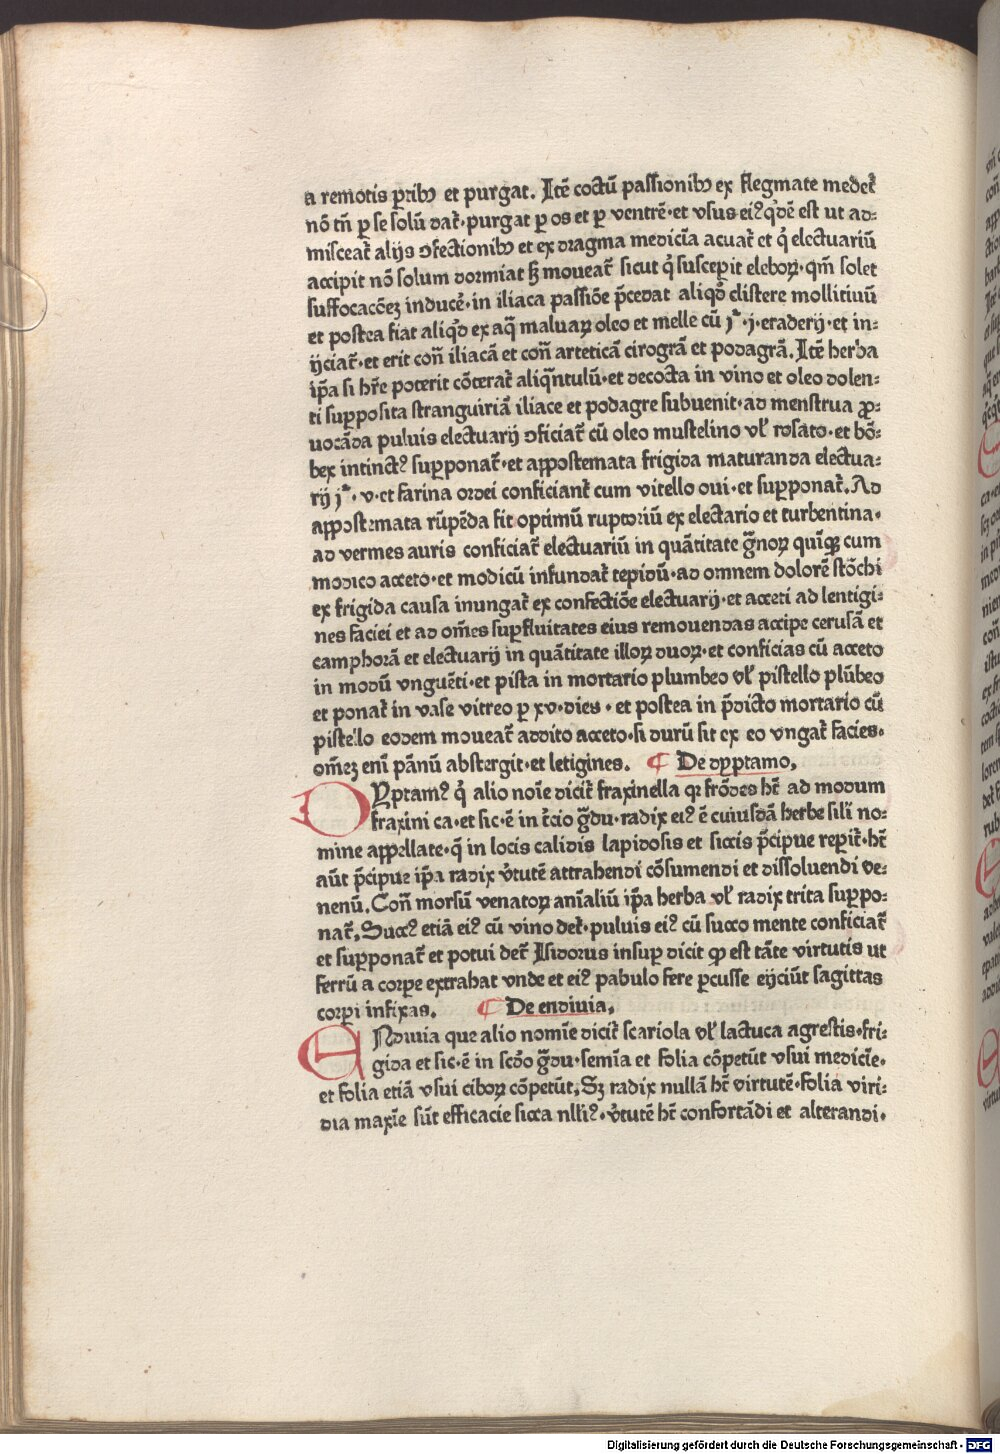 a remotis ꝑtibꝫ et purgat. Itē coctū passionibꝫ ex flegmate medet᷑
nō tn̄ ꝑ se solū dat᷑·purgat ꝑ os et ꝑ ventrē·et vsus eiꝰ qͥdē est ut ad⸗
misceat᷑ alijs ↄfectionibꝫ et ex dragma medicīa acuat᷑ et qͥ electuariū
accipit nō solum dormiat sꝫ moueat᷑ sicut qͥ suscepit eleboꝝ·qm̄ solet
suffocacōeꝫ inducē·in iliaca passiōe p̄cedat aliqͥd clistere mollitiuū
et postea fiat aliqͥd ex aq̄ maluaꝝ oleo et melle cū ʒ·j·eraderij·et in⸗
ijciat᷑·et erit con̄ iliacā et con̄ arteticā cirogrā et podagrā. Itē herba
ip̄a si hr̄e poterit cōterat᷑ aliqn̄tulū·et decocta in vino et oleo dolen⸗
ti supposita stranguiriā iliace et podagre subuenit·ad menstrua ꝓ⸗
uocāda puluis electuarij ↄficiat᷑ cū oleo mustelino vl᷑ rosato·et bō⸗
bex intinctꝰ supponat᷑·et appostemata frigida maturanda electua⸗
rij ʒ·v·et farina ordei conficiant᷑ cum vitello oui·et supponat᷑. Ad
appostemata rūpēda fit optimū ruptoriū ex electario et turbentina·
ad vermes auris conficiat᷑ electuariū in quātitate gͣnoꝝ quīqꝫ cum
modico acceto·et modicū infundat᷑ tepidū·ad omnem dolorē stōchi
ex frigida causa inungat᷑ ex confectiōe electuarij·et acceti ad lentigi⸗
nes faciei et ad om̄es suꝑfluitates eius remouendas accipe cerusā et
camphorā et electuarij in quātitate illoꝝ duoꝝ·et conficias cū acceto
in modū vnguēti·et pista in mortario plumbeo vl᷑ pistello plūbeo
et ponat᷑ in vase vitreo ꝑ xv·dies·et postea in p̄dicto mortario cū
pistello eodem moueat᷑ addito acceto·si durū sit ex eo vngat᷑ facies·
om̄eꝫ eni̅ pānū abstergit·et letigines. ¶ De dyptamo,
DYptamꝰ qͥ alio noīe dicit᷑ fraxinella qꝛ frōdes hꝫ ad modum
fraxini ca·et sic·ē in t̄cio gͣdu·radix eiꝰ ē cuiusdā herbe sili̅ no⸗
mine appellate·q̄ in locis calidis lapidosis et siccis p̄cipue reꝑit᷑·hꝫ
aūt p̄cipue ip̄a radix v̄tutē attrahendi cōsumendi et dissoluendi ve⸗
nenū. Con̄ morsū venatoꝝ anīaliū ip̄a herba vl᷑ radix trita suppo⸗
nat᷑. Succꝰ etiā eiꝰ cū vino det᷑·puluis eiꝰ cū succo mente conficiat᷑
et supponat᷑ et potui det᷑ Isidorus insuꝑ dicit ꝙ est tāte virtutis ut
ferrū a corpe extrahat vnde et eiꝰ pabulo fere ꝑcusse eijciūt sagittas
corpi infixas. ¶ De endiuia,
ENdiuia que alio nomīe dicit᷑ scariola vl᷑ lactuca agrestis·fri⸗
gida et sic·ē in scd̄o gͣdu·semīa et folia cōpetūt vsui medicīe·
et folia etiā vsui ciboꝝ cōpetūt, Sꝫ radix nullā hꝫ virtutē·folia viri⸗
dia maxīe sūt efficacie sicca nlliꝰ·v̄tutē hꝫ confortādi et alterandi·
Digitalisierung gefördert durch die Deutsche Forschungsgemeinschaft - DFG